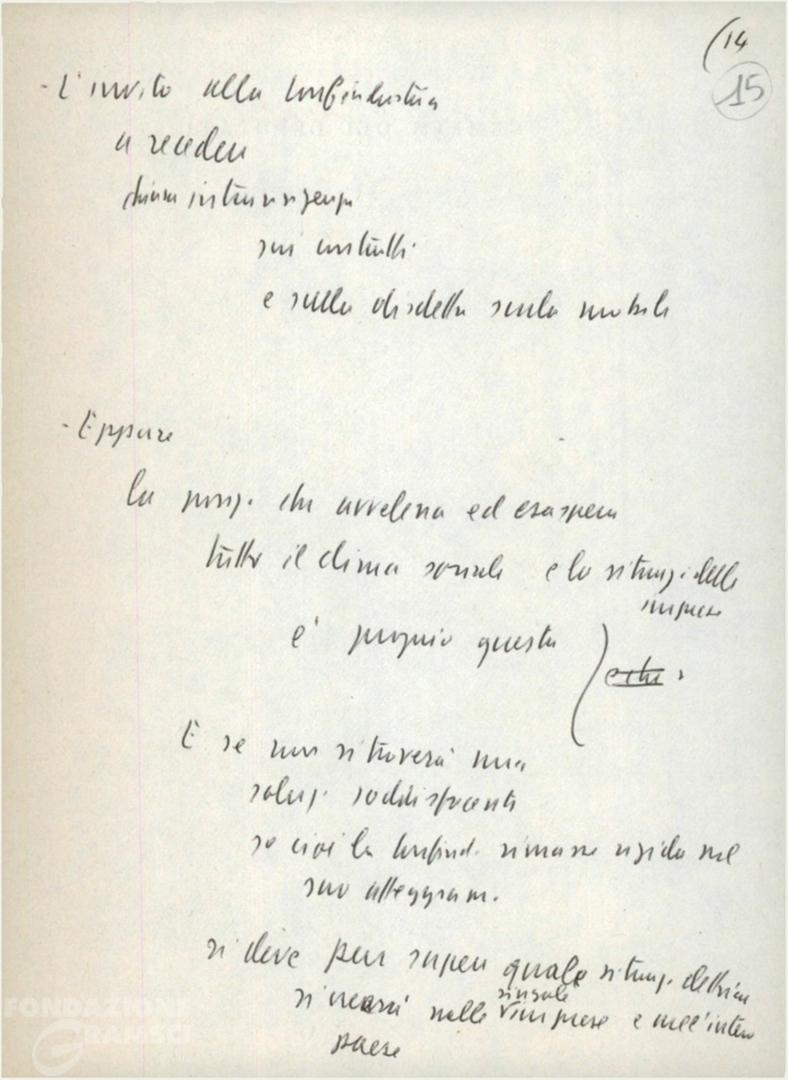 (14
15
- L'invito alla Confindustria
a recedere
chiara intransigenza
sui contratti
e sulla disdetta scala mobile
- Eppure
la posiz. che avvelena ed esaspera
tutto il clima sociale e la situaz. delle
imprese
è proprio questa
E se non si troverà una
soluz. soddisfacente
se cioè la Confind. rimane rigida nel
suo atteggiam.
si deve pur sapere quale situaz.
singole
si creerà nelle imprese e nell'intero
paese
FONDAZIONE
GRAMSCI